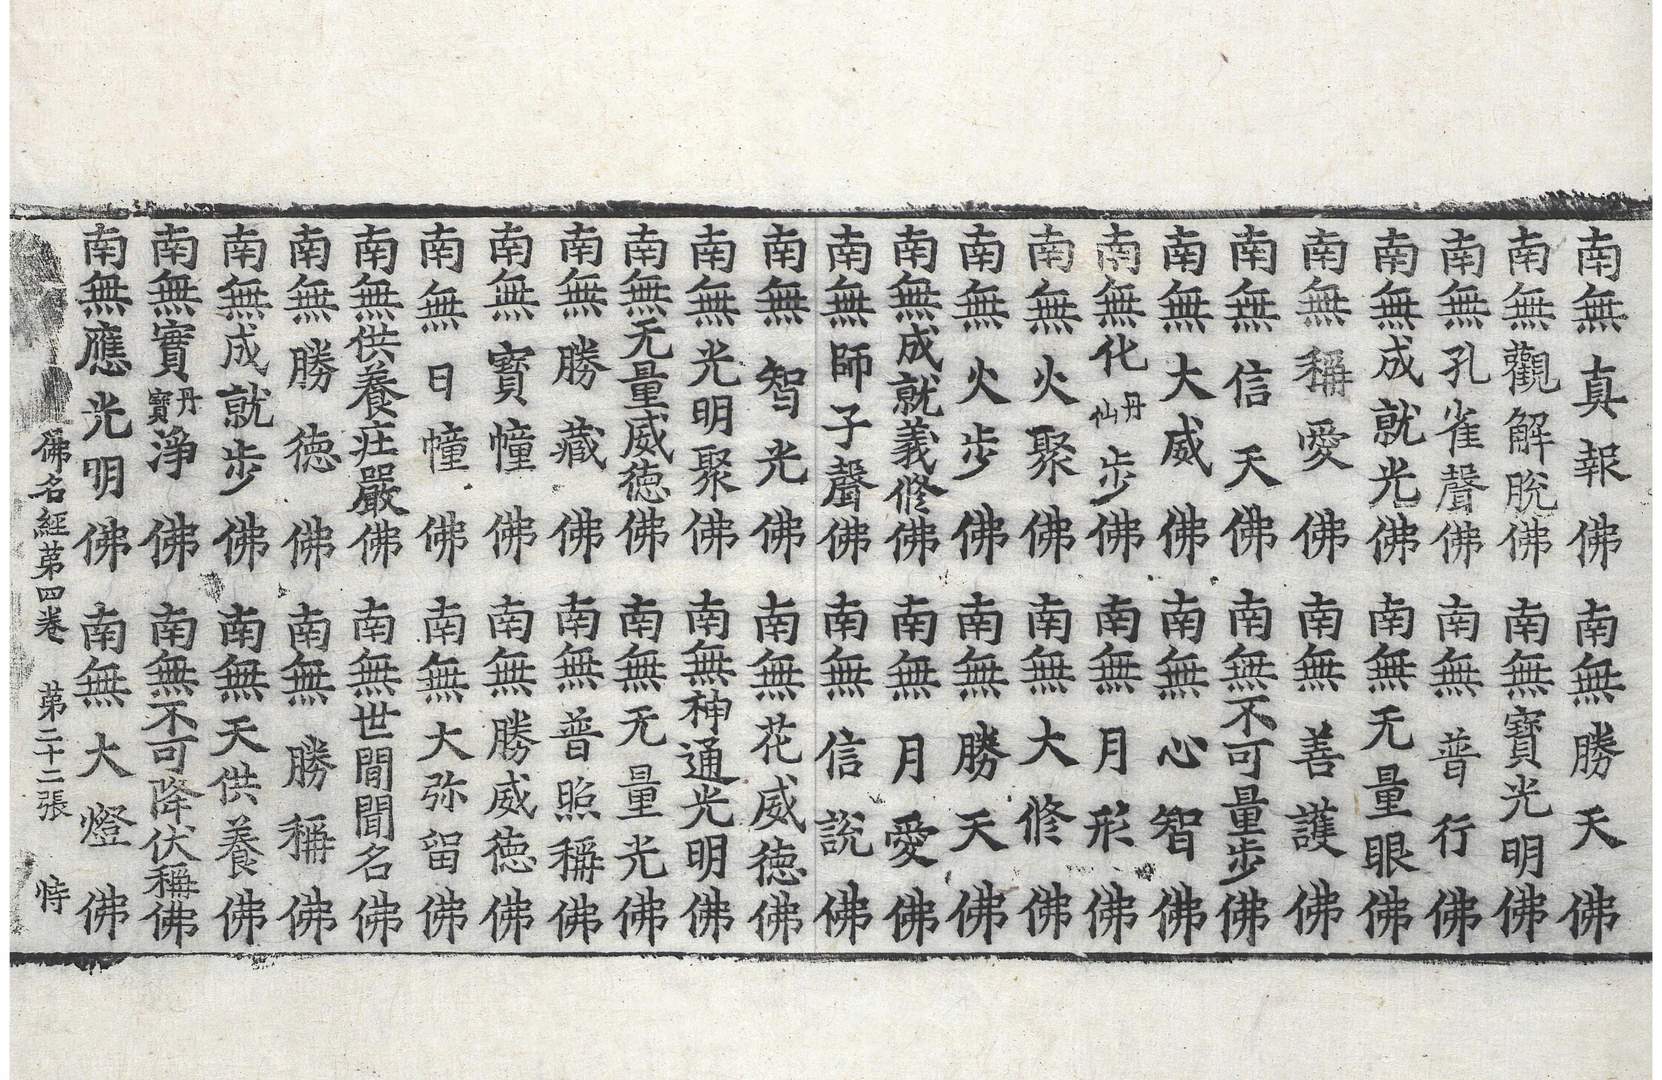 南無真報佛 南無勝天佛
南無觀解脫佛 南無寶光明佛
南無孔雀聲佛 南無普行佛
南無成就光佛 南無无量眼佛
南無稱愛佛 南無善護佛
南無信天佛 南無不可量步佛
南無大威佛 南無心智佛
南無化丹仙步佛 南無月形佛
南無火聚佛 南無大修佛
南無火步佛 南無勝天佛
南無成就義修佛 南無月愛佛
南無師子聲佛 南無信說佛
南無智光佛 南無花威德佛
南無光明聚佛 南無神通光明佛
南無无量威德佛 南無无量光佛
南無勝藏佛 南無普照稱佛
南無寶幢佛 南無勝威德佛
南無日幢佛 南無大弥留佛
南無供養庄嚴佛 南無世間聞名佛
南無勝德佛 南無勝稱佛
南無成就步佛 南無天供養佛
南無實丹寶淨佛 南無不可降伏稱佛
南無應光明佛 南無大燈佛
佛名經苐四卷 苐二十二張 恃